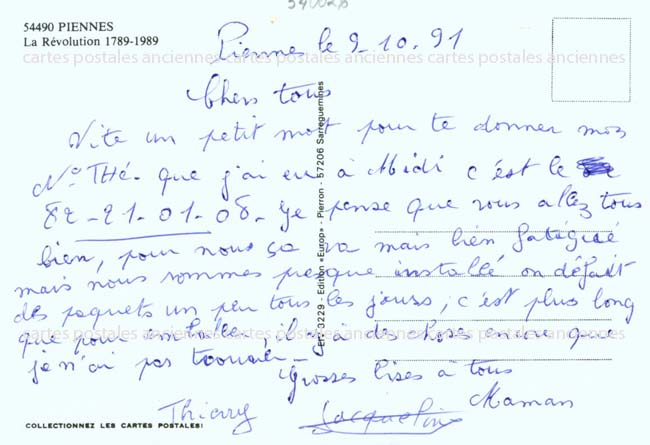 54002B
54490 PIENNES
La Révolution 1789-1989
Piennes le 9-10.91
cartes postales anciennes cartes postales anciennes cartes postales anciennes
Chers tous
Vite un petit mot pour te donner mon
N° Thé. que j'ai eu à Midi c'est le
82-21-01-08- Je pense que vous allez tous
bien, pour nous ça va mais bien fatigué
mais nous sommes presque installé on défait
des paquets un peu tous les jours, c'est plus long
cartes postales anciennes cartes postales anciennes cartes postales anciennes
que pour emballer, il y a de choses encore que
je n'ai pas trouver -
Grosses bises à tous
Maman
Thierry Jacqueline
COLLECTIONNEZ LES CARTES POSTALES!
3229 - Edition «Europ» - Pierron - 57206 Sarreguemines